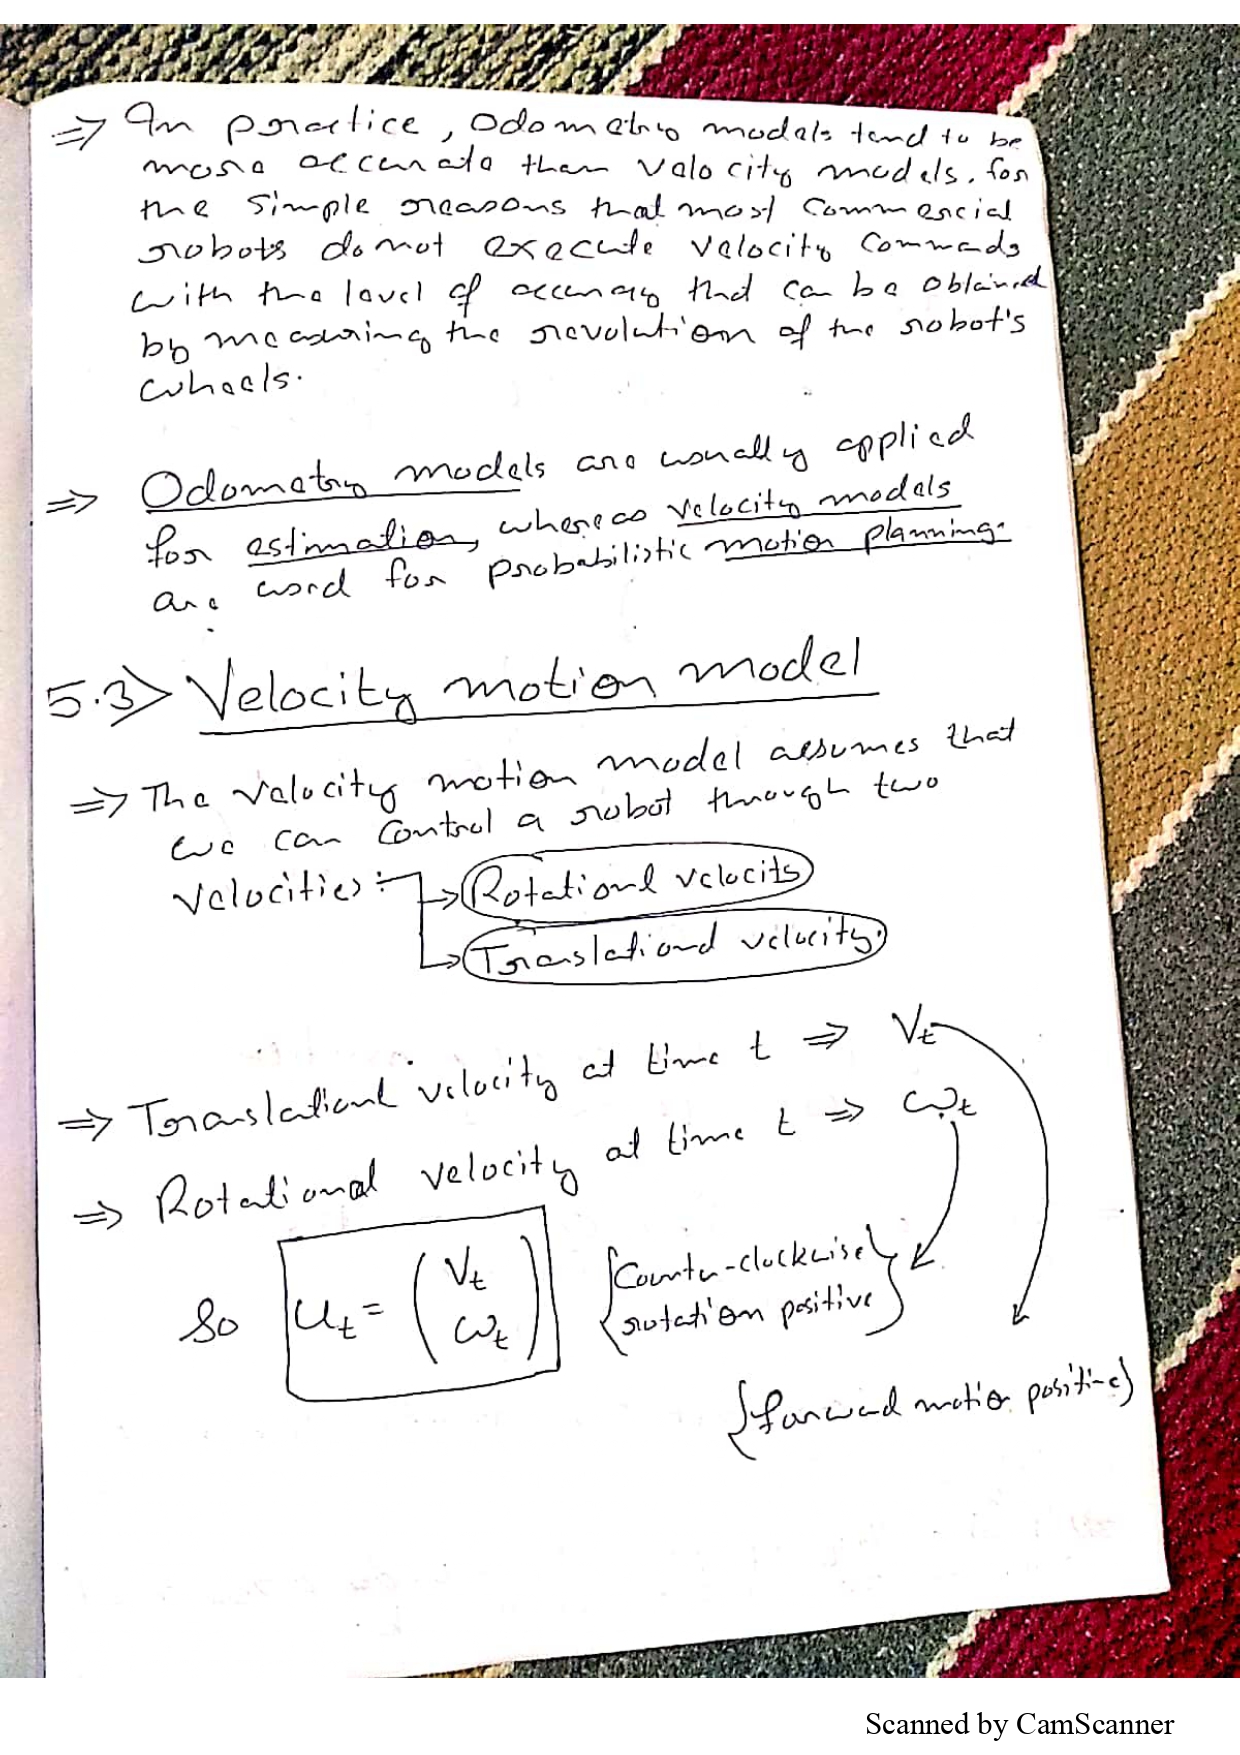 ⇒ In practice, Odometry models tend to be
more accurate than Velocity models, for
the simple reasons that most Commercial
robots do not execute velocity Commads
with the level of accuracy that can be obtained
by measuring the revolution of the robot's
wheels.
⇒ Odometry models are usually applied
for estimation, whereas velocity models
are used for probabilistic motion planning.
5.3> Velocity motion model
⇒ The velocity motion model assumes that
we can Control a robot through two
velocities: → Rotational velocity
→ Translational velocity.
⇒ Translational velocity at time t ⇒ Vt
⇒ Rotational velocity at time t ⇒ ωt
So Ut = (Vt ωt) {Counter-clockwise
rotation positive}
{forward motion positive}
Scanned by CamScanner